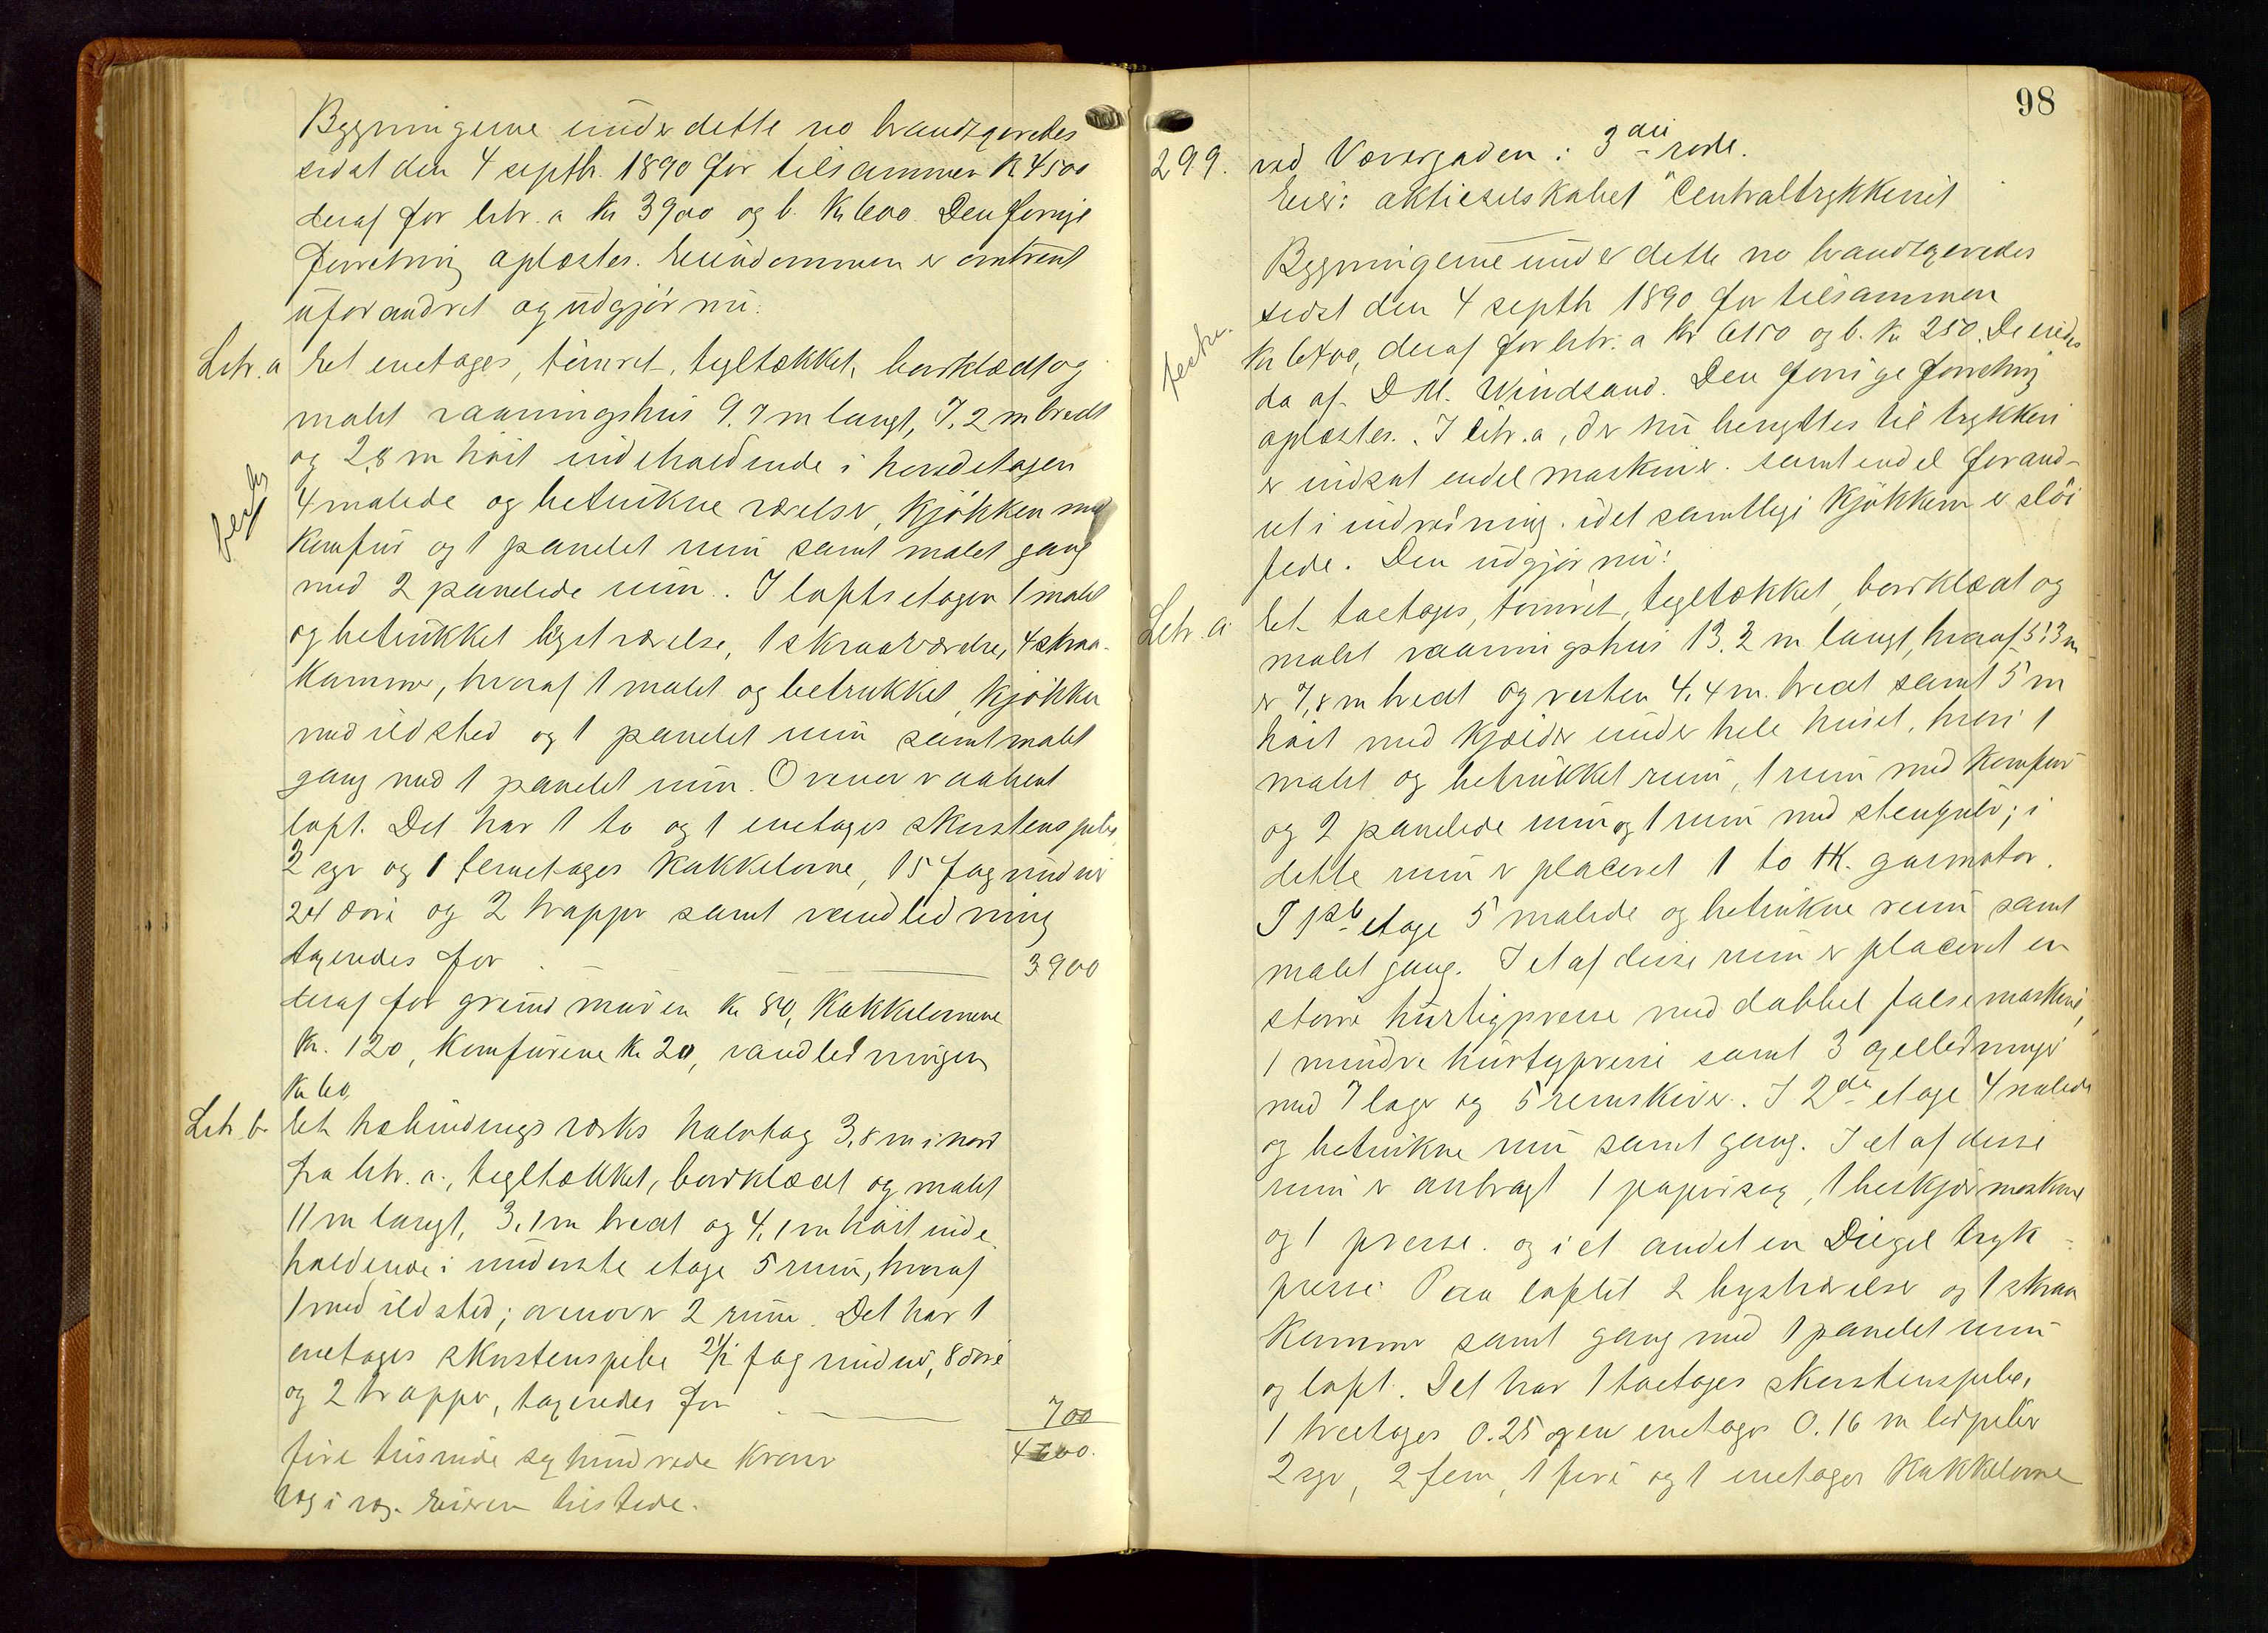 Bygningerne under dette no brandtaxeredes
sidst den 4 septbr. 1890 for tilsammen K 4500
deraf for litr. a Kr 3900 og b. Kr 600. Den forrige
forretning oplæstes. Eiendommen er omtrent
uforandret og udgjör nu:
Litr. a Et enetages, tömret, tegltækket, bordklædt og
malet vaaningshus 9.7 m langt, 7.2 m bredt
og 2,8 m höit indeholdende i hovedetagen
4 malede og betrukne værelser, kjökken med
komfur og 1 panelet rum samt malet gang
med 2 panelede rum. I loftsetagen 1 malet
og betrukket kystværelse, 1 skraaværelse, 4 skraa-
kammer, hvoraf 1 malet og betrukket, kjökken
med ildsted og 1 panelet rum samt malet
gang med 1 panelet rum. Ovenover aabent
loft. Det har 1 to og 1 enetages skorstenspibe,
2 og 1 femetages kakkelovne, 15 fag vinduer
24 döre og 2 trapper samt vandledning
taxeredes for 3900
deraf for grundmuren Kr 80, Kakkelovnene
Kr. 120, Komfurene Kr 20, vandledningen
Kr 60,
Litr b. Et bindingsværks halvtag 3,8 m i nord
fra litr. a., tegltækket, bordklædt og malet
11 m langt, 3,1 m bredt og 4,1 m höit inde
holdende i underste etage 5 rum, hvoraf
1 med ildsted; ovenover 2 rum. Det har 1
enetages skorstenspibe 2 1/2 fag vinduer, 8 döre
og 2 trapper, taxeredes for 700
fire tusinde sexhundrede kroner 4600.
Eieren tilstede.
98
299. ved Vævergaden: 3die rode.
Eier: aktieselskabet "Centraltrykkeriet
Bygningerne under dette no brandtaxeredes
sidst den 4 septbr 1890 for tilsammen
Kr 6400, deraf for litr. a Kr 6150 og b. Kr 250. De eiedes
da af D M. Windsand. Den forrige forretning
oplæstes. I litr. a, der nu benyttes til trykkeri
er indsat endel maskiner. samt endel forand-
ret i indredning. idet samtlige kjökkener er slöi
fede. Den udgjör nu:
Litr. a. Et toetages, tömret, tegltækket, bordklædt og
malet vaaningshus 13.2 m langt, hvoraf 5,3 m
er 7,8 m bredt og resten 4,4 m. bredt samt 5 m
höit med kjælder under hele huset, hvori 1
malet og betrukket rum, 1 rum med komfur
og 2 panelede rum og 1 rum med stengulv; i
dette rum er placeret 1 to HK. gasmotor.
I 1ste etage 5 malede og betrukne rum samt
malet gang. I et af disse rum er placeret en
större hurtigpresse med dobbel falsemaskine,
1 mindre hurtigpresse samt 3 axelledninger
med 7 lager og 5 remskiver. I 2den etage 4 malede
og betrukne rum samt gang. I et af disse
rum er anbragt 1 papirsax, 1 beskjærmaskine
og 1 presse. og i et andet en Diegel tryk-
presse. Paa loftet 2 kystværelser og 1 skraa
kammer samt gang med 1 panelet rum
og loft. Det har 1 toetages skorstenspibe,
1 treetages 0.25 og en enetages 0.16 m lerpiber
2 2 fem, 1 fire og 1 enetages kakkelovne